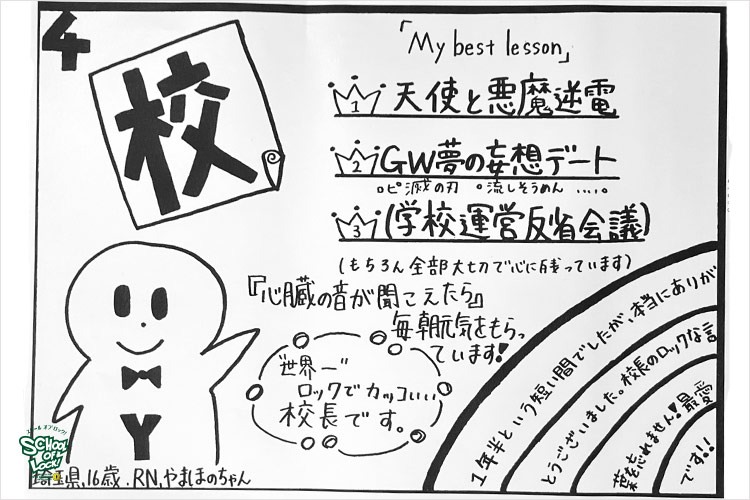 4
校
「My best lesson」
1 天使と悪魔逆電
2 GW夢の妄想デート
○ピ滅の刃 ○流しそうめん ....。
3 (学校運営反省会議)
(もちろん全部大切で心に残っています)
『心臓の音が聞こえたら』
毎朝元気をもらっ
ています!
"世界一"
ロックでカッコいい
校長です。
1年半という短い間でしたが、本当にありが
とうございました。校長のロックな言
葉を忘れません!最愛
です!!
Y
SCHOOL
OF
LOCK!
埼玉県,16歳.RN,やまほのちゃん